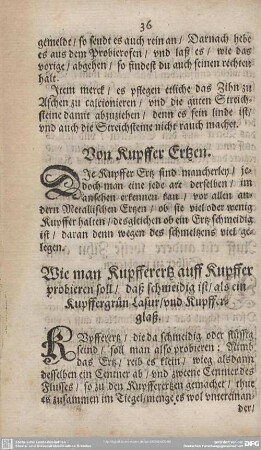 36
gemeldt / so sendt es auch rein an / Darnach hebe
es aus dem Probierofen / vnd lass es / wie das
vorige / abgehen / so findest du auch seinen rechten
halt.
Jtem merck / es pflegen etliche das Zihn zu
Aschen zu calcionieren / vnd die guten Streich-
steine damit abzuziehen / denn es fein linde ist /
vnd auch die Streichsteine nicht rauch machet.
Von Kupffer Ertzen.
DJe Kupffer Ertz sind mancherley / je-
doch man eine jede art derselben / im
Ansehen erkennen kan / vor allen an-
dern Metallischen Ertzen / ob sie viel oder wenig
Kupffer halten / desgleichen ob ein Ertz schmeidig
ist / daran denn wegen des schmeltzens viel ge-
legen.
Wie man Kupfferertz auff Kupffer
probieren soll / daß schmeidig ist / als ein
Kupffergrün Lasur / vnd Kupffer-
glaß.
KVpffererz / die da schmeidig oder flüssig
seind / soll man also probieren: Nimb
das Ertz / reib es klein / wieg alsdann
desselben ein Centner ab / vnd zweene Centner des
Flusses / so zu den Kupffererzen gemachet / thue
es zusammen im Tiegel / menge es wol vntereinan-
der /